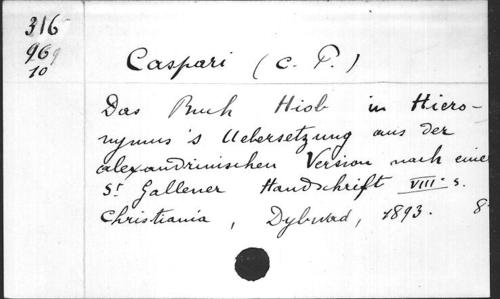 316
969
10
Caspari (C. P.)
Das Buch Hiob in Hiero-
nymus's Uebersetzung aus der
alexandrinischen Version nach eine
St Gallener Handschrift VIII. s.
Christiania, Dybwad, 1893. 8